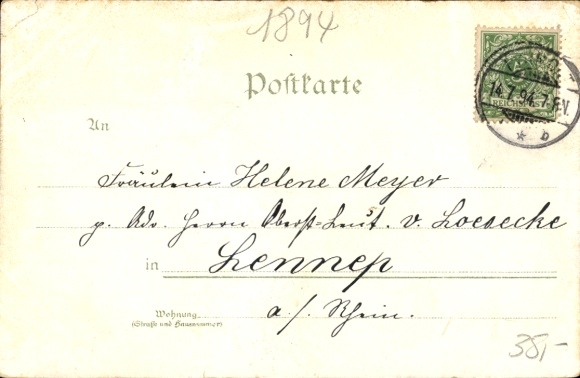 1894
Postkarte
REICHSPOST
14.7.94.7-8V.
* b
An
Fräulein Helene Meyer
p. Adr. Herrn Oberst-Leut. v. Loebecke
in Lennep
Wohnung
(Straße und Hausnummer)
a/. Rhein.
35,-